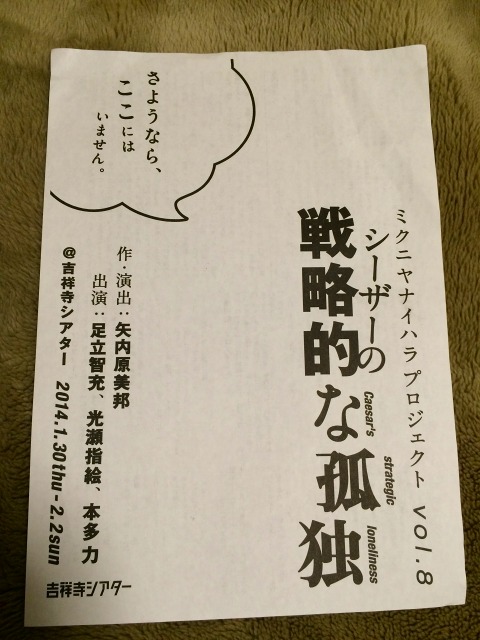 ミクニヤナイハラプロジェクト vol.8
シーザーの
戦略的な孤独
Caesar's
strategic
loneliness
さようなら、
ここには
いません。
作・演出：矢内原美邦
出演：足立智充、光瀬指絵、本多 力
@吉祥寺シアター 2014.1.30thu-2.2sun
吉祥寺シアター